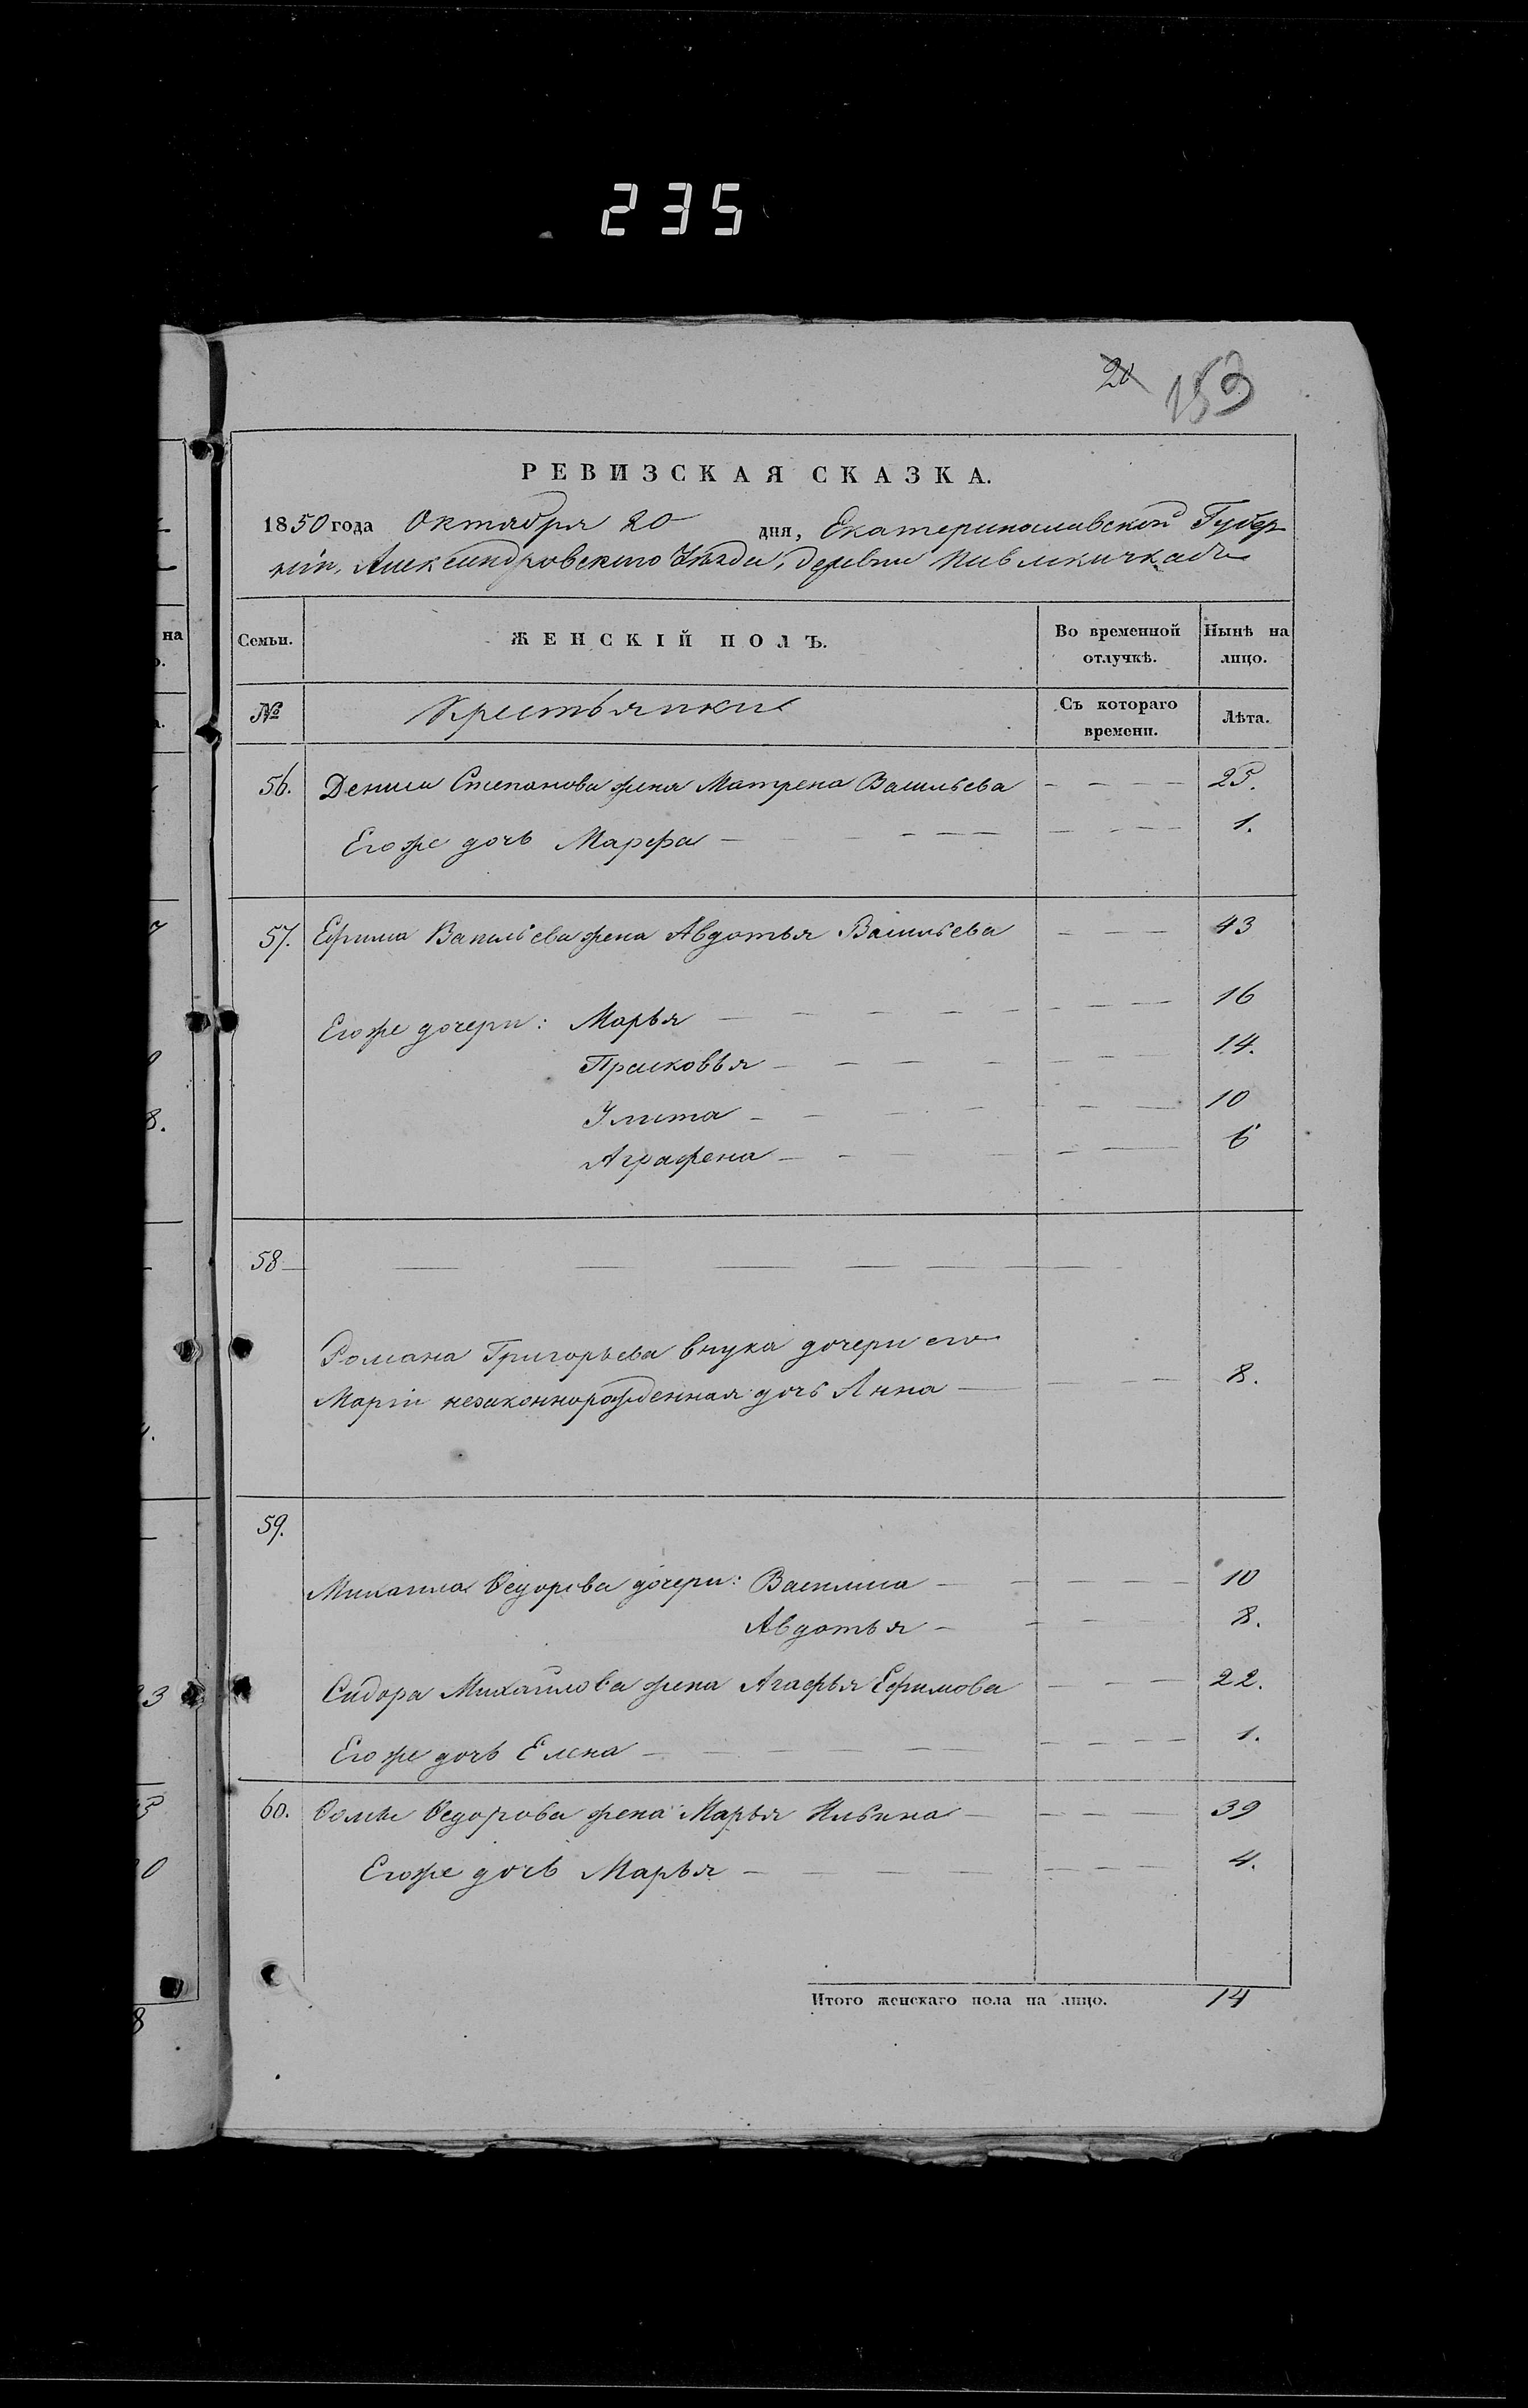 235
20 153
РЕВИЗСКАЯ СКАЗКА.
1850 года Октября 20 дня, Екатеринославской Губер
ніи, Александровскаго Уѣзда, деревни Павлокичкасъ
Семьи. ЖЕНСКІЙ ПОЛЪ. Во временной отлучкѣ. Нынѣ на лицо.
№ Крестьянки Съ котораго времени. Лѣта.
56. Дениса Степанова жена Матрена Васильева 25.
Егоже дочь Марфа 1.
57. Ефима Васильева жена Авдотья Васильева 43
Егоже дочери: Марья 16
Прасковья 14.
Улита 10
Аграфена 6
58
Романа Григорьева внука дочери его
Маріи незаконнорожденная дочь Анна 8.
59.
Михаила Ѳедорова дочери: Василиса 10
Авдотья 8.
Сидора Михайлова жена Агафья Ефимова 22.
Егоже дочь Елена 1.
60. Ѳомы Ѳедорова жена Марья Ильина 39
Егоже дочь Марья 4.
Итого женскаго пола на лицо. 14